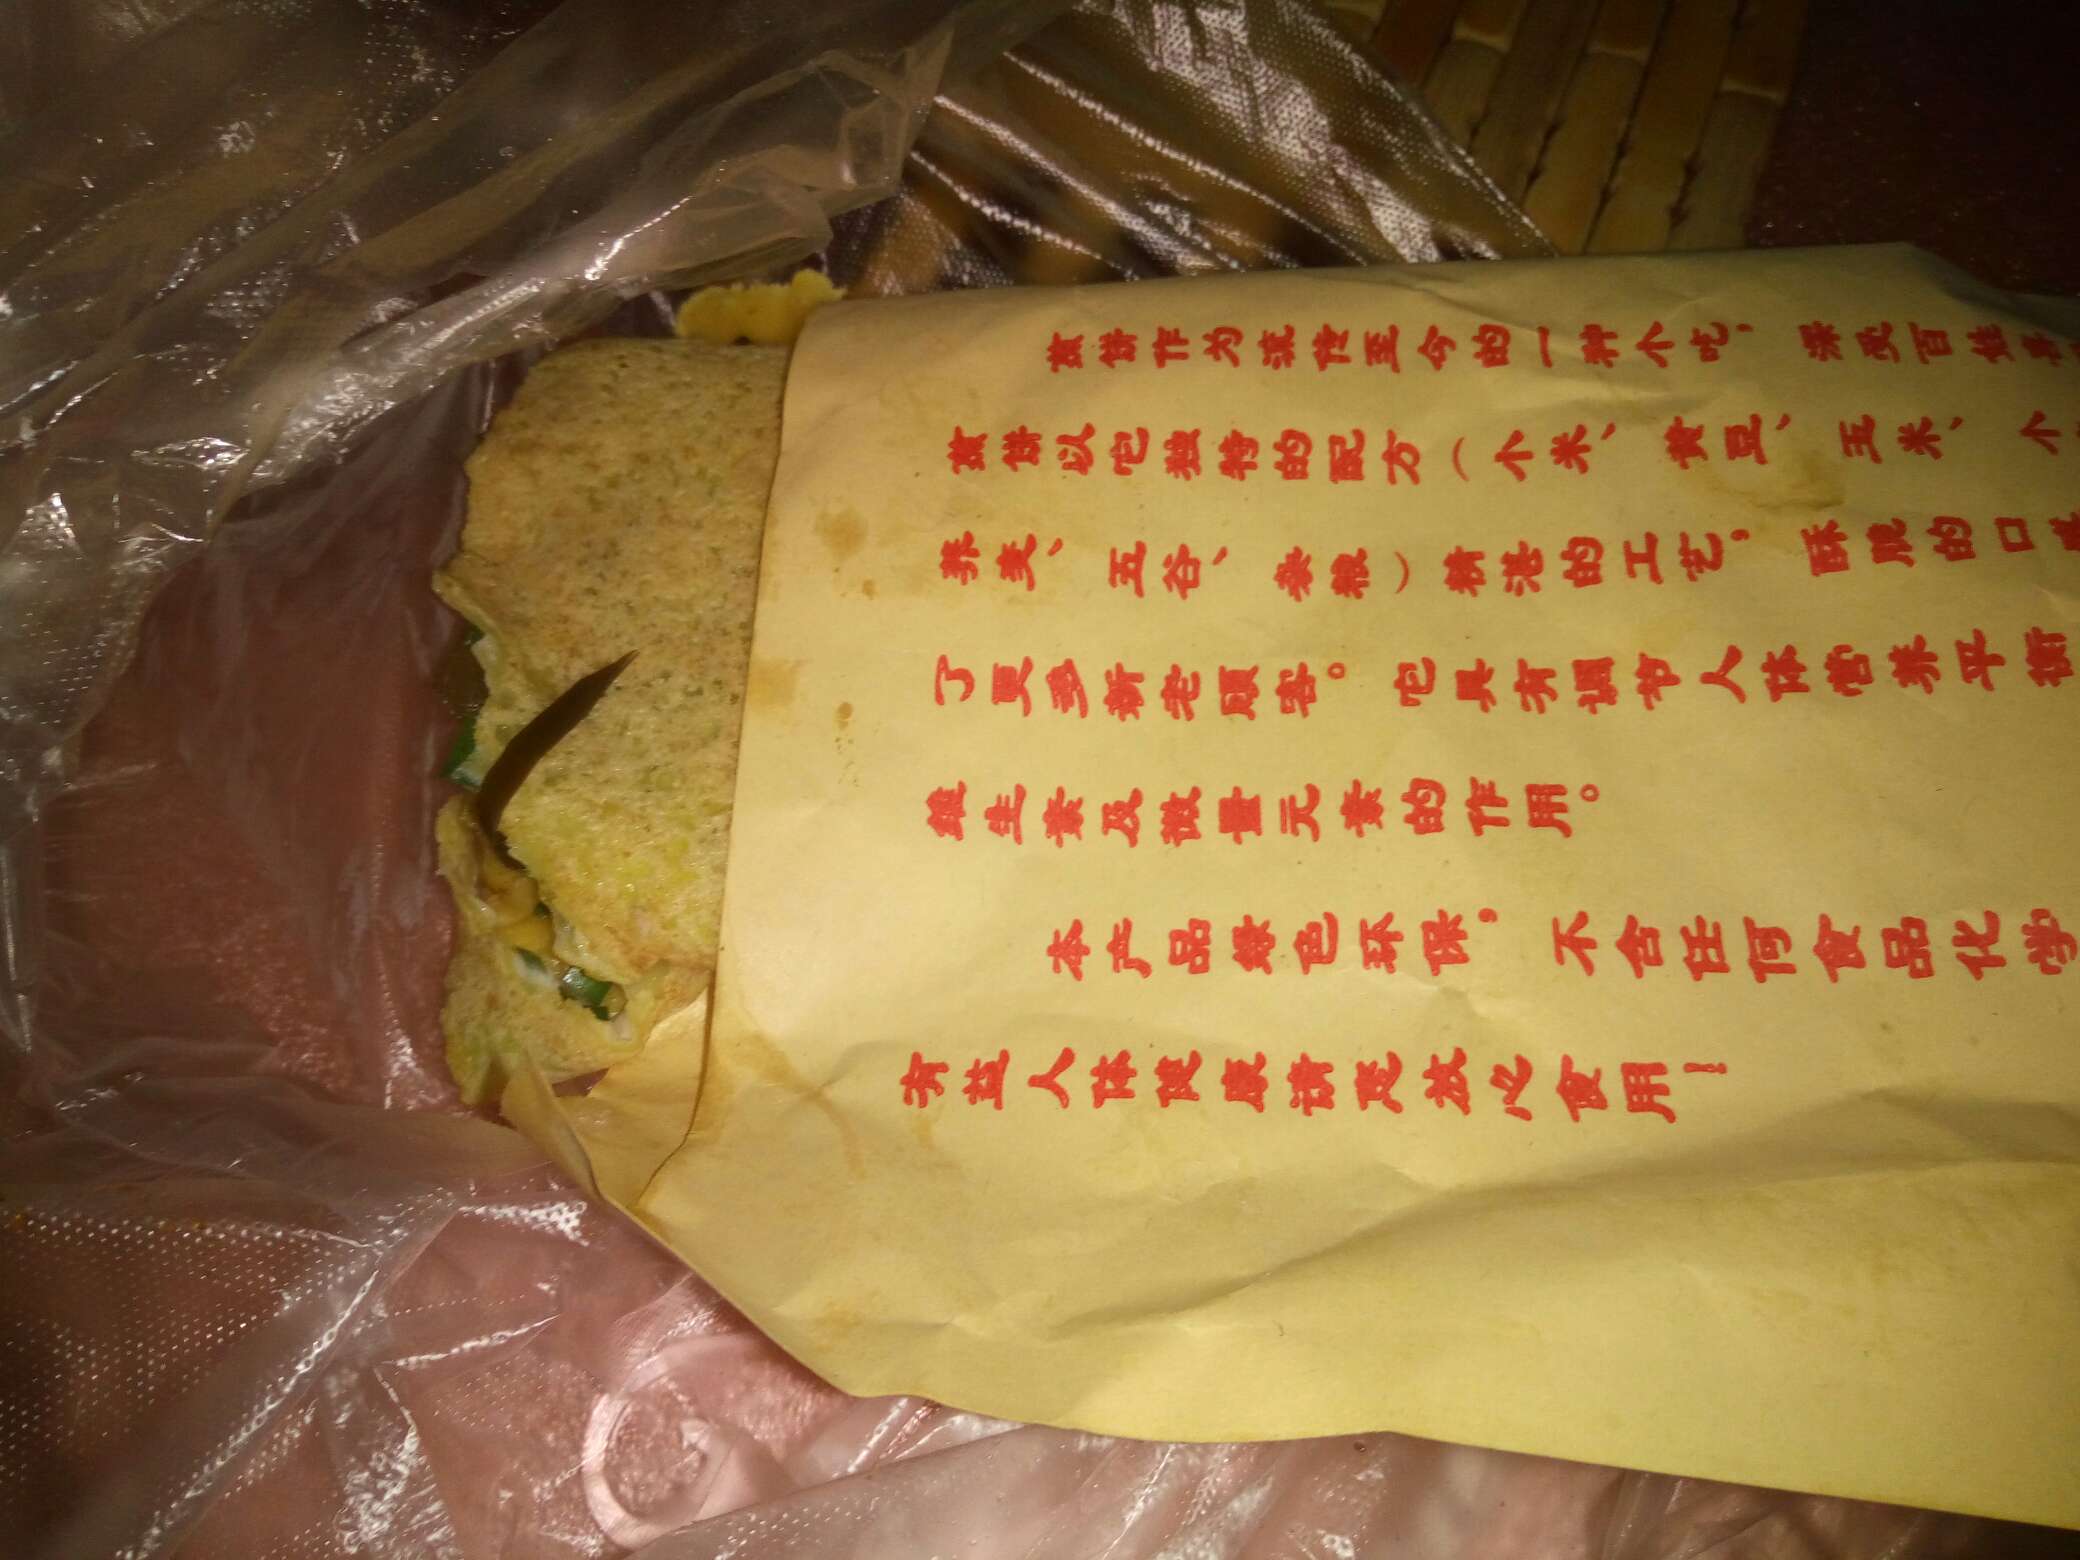 煎饼作为流传至今的一种小吃，深受百姓
煎饼以它独特的配方（小米、黄豆、玉米、小
荞麦、五谷、杂粮）精湛的工艺，酥脆的口
了更多新老顾客。它具有调节人体营养平衡
维生素及微量元素的作用。
本产品绿色环保，不含任何食品化学
有益人体健康请您放心食用！